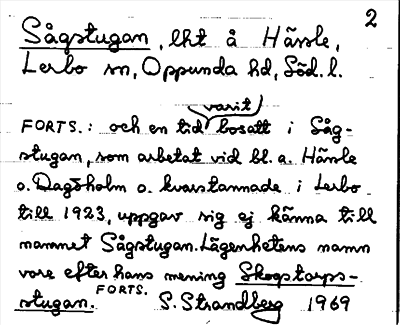 2
Sågstugan, lht å Hässle,
Lerbo sn, Oppunda hd, Söd. l.
varit
FORTS.: och en tid bosatt i Såg-
stugan, som arbetat vid bl. a. Hässle
o. Dagsholm o. kvarstannade i Lerbo
till 1923, uppgav sig ej känna till
namnet Sågstugan. Lägenhetens namn
vore efter hans mening Skogstorps-
stugan. FORTS. S. Strandberg 1969